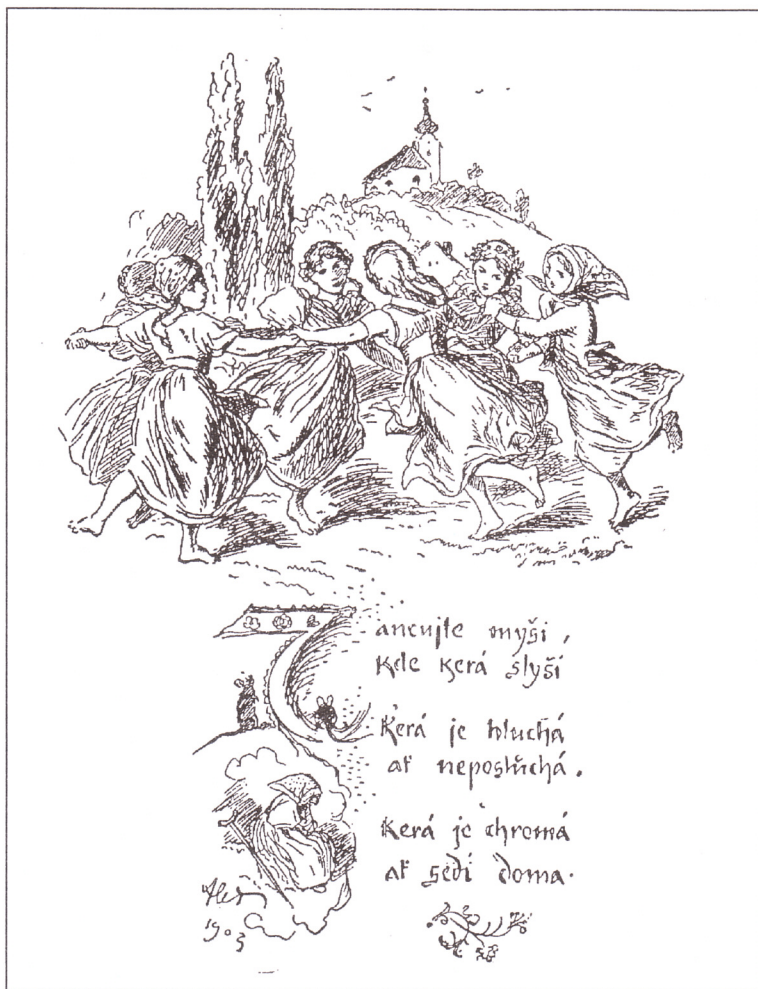 Tancujte myši,
kde kerá slyší
Kerá je hluchá
ať neposlúchá.
Kerá je chromá
ať sedí doma.
Aleš
1903